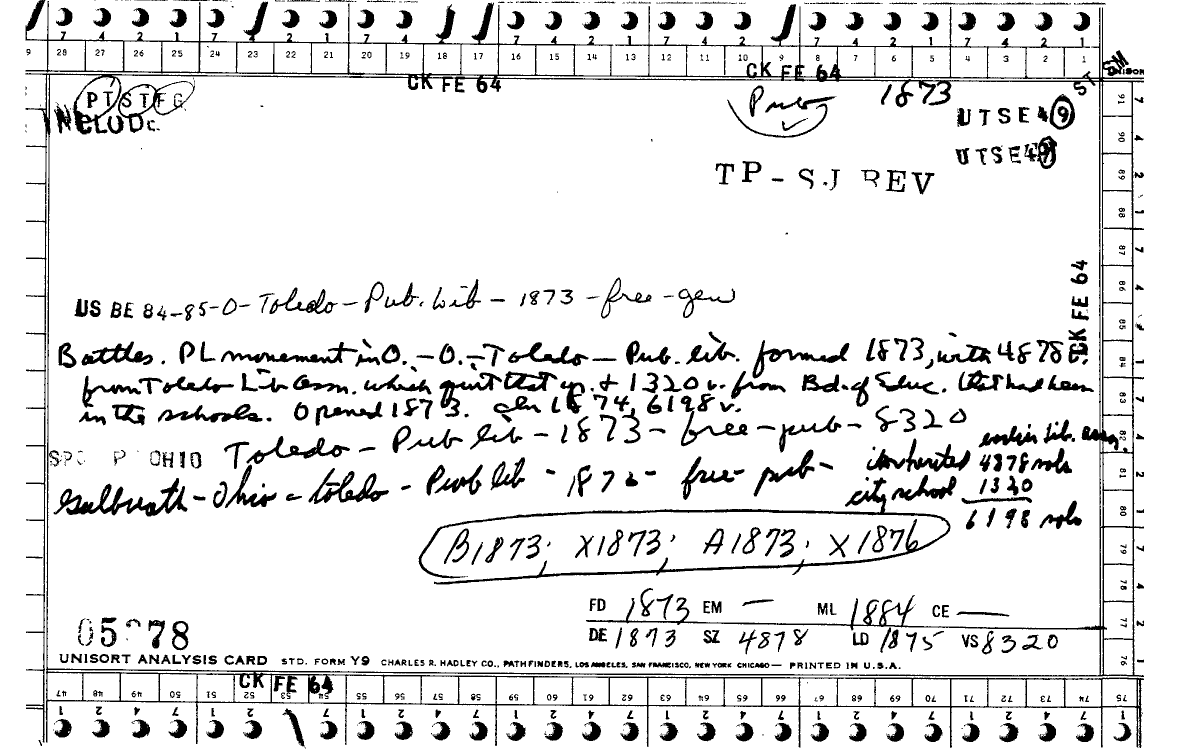 7 4 2 1 7 4 2 1 7 4 2 1 7 4 2 1 7 4 2 1 7 4 2 1 7 4 2 1
9 28 27 26 25 24 23 22 21 20 19 18 17 16 15 14 13 12 11 10 9 8 7 6 5 4 3 2 1
CK FE 64 CK FE 64
PT ST FG Pub 1873 UTSE49
INCLUD UTSE49
TP-SJ REV
CK FE 64
US BE 84-85-O-Toledo-Pub. Lib - 1873 -free-gen
Battles. PL movement in O. - O. - Toledo - Pub. lib. formed 1873, with 4878
from Toledo Lib Assn. which quit that yr. & 1320 v. from Bd. of Educ. that had been
in the schools. Opened 1873. 1874, 6198 v.
OHIO Toledo - Pub lib - 1873 - free - pub - 8320
Galbreath - Ohio - toledo - Pub lib - 187 - free - pub -
earlier Lib. assn.
inherited 4878 vols
city school 1320
6198 vols
B1873; X1873; A1873; X1876
FD 1873 EM — ML 1884 CE —
DE 1873 SZ 4878 LD 1875 VS 8320
05 78
UNISORT ANALYSIS CARD STD. FORM Y9 CHARLES R. HADLEY CO., PATHFINDERS, LOS ANGELES, SAN FRANCISCO, NEW YORK CHICAGO— PRINTED IN U.S.A.
CK FE 64
47 48 49 50 51 52 53 54 55 56 57 58 59 60 61 62 63 64 65 66 67 68 69 70 71 72 73 74 75